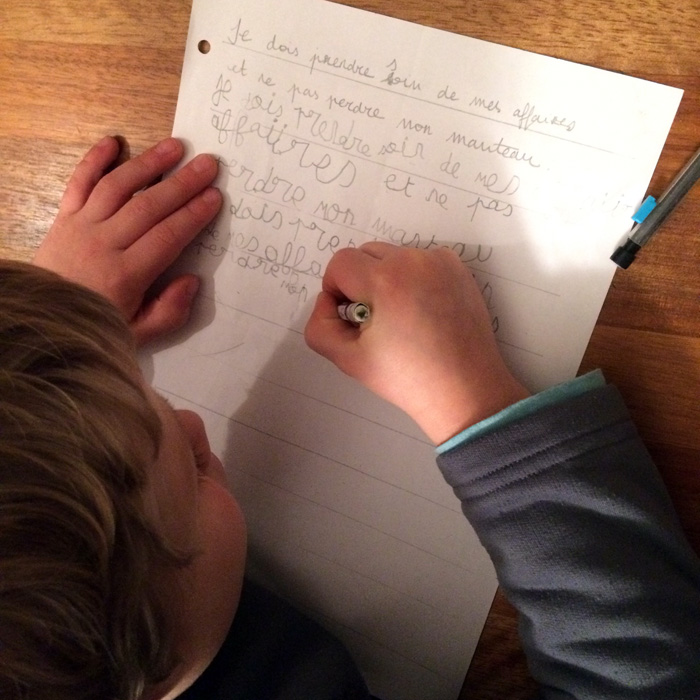 Je dois prendre soin de mes affaires
et ne pas perdre mon manteau.
Je dois prendre soin de mes
affaires et ne pas
perdre mon manteau
dois pren
mes affa
perdre mon